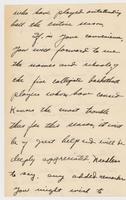 who have played outstanding
ball the entire season.
If, in your convenience,
you would forward to me
the names and schools of
the five collegiate basketball
players whom you have consid-
the most trouble
thus far this season, it will
be of great help and will be
deeply appreciated. Needless
to say, any added remarks
you might wish to